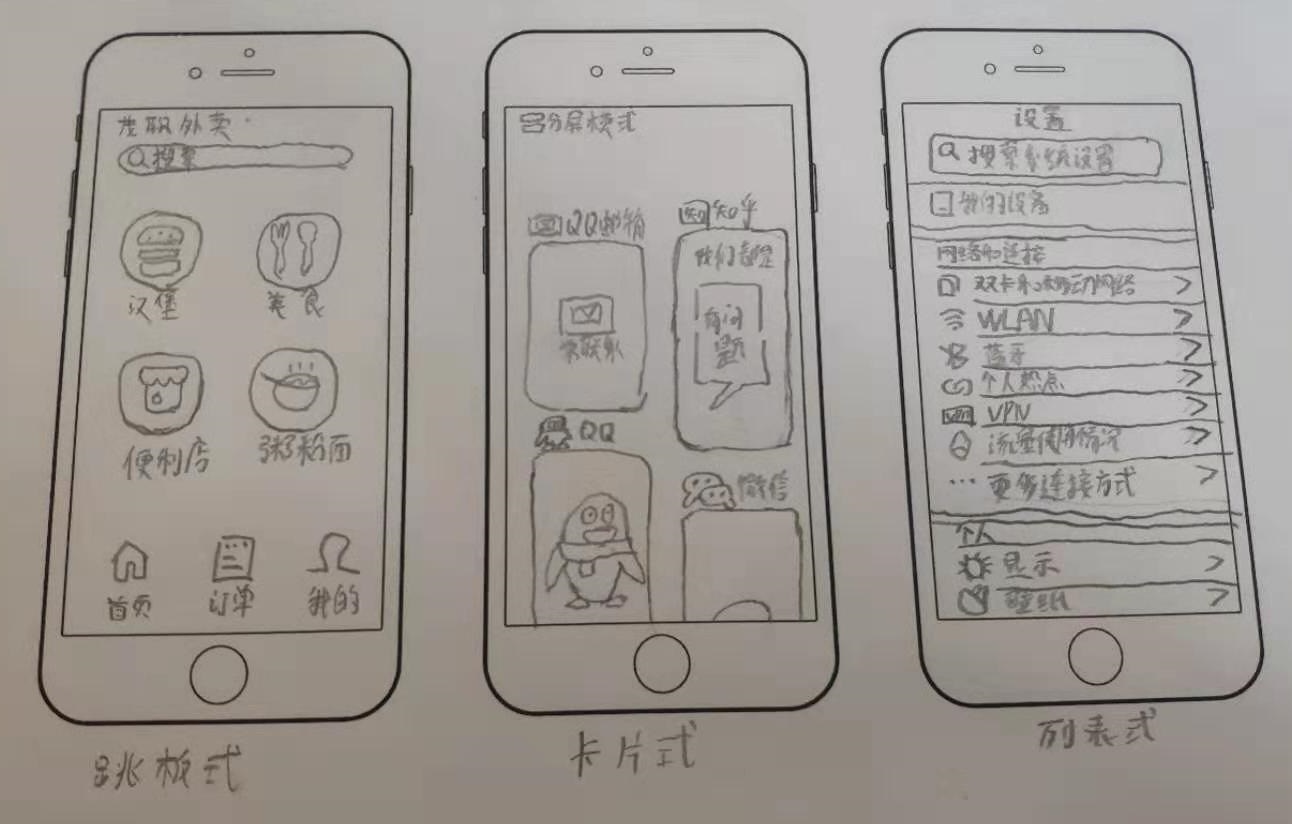 茂职外卖
搜索
汉堡
美食
便利店
粥粉面
首页
订单
我的
跳板式
分屏模式
QQ邮箱
知 知乎
我们都是
有问
题
常联系
QQ
微信
卡片式
设置
搜索系统设置
我的设备
网络和连接
双卡和移动网络
WLAN
蓝牙
个人热点
VPN
流量使用情况
更多连接方式
个人
显示
壁纸
列表式